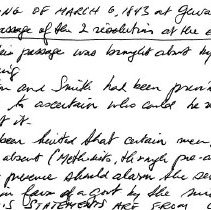 NG OF MARCH 6, 1843 at Gerva
ssage of the 2 resolutions at the e
eir passage was brought about by
ing
n and Smith had been previou
to ascertain who could be r
st it.
been hinted that certain men
absent (Methodists, through pre-a
presence should alarm the se
in favor of a govt by the
IS STATEMENTS ARE FROM